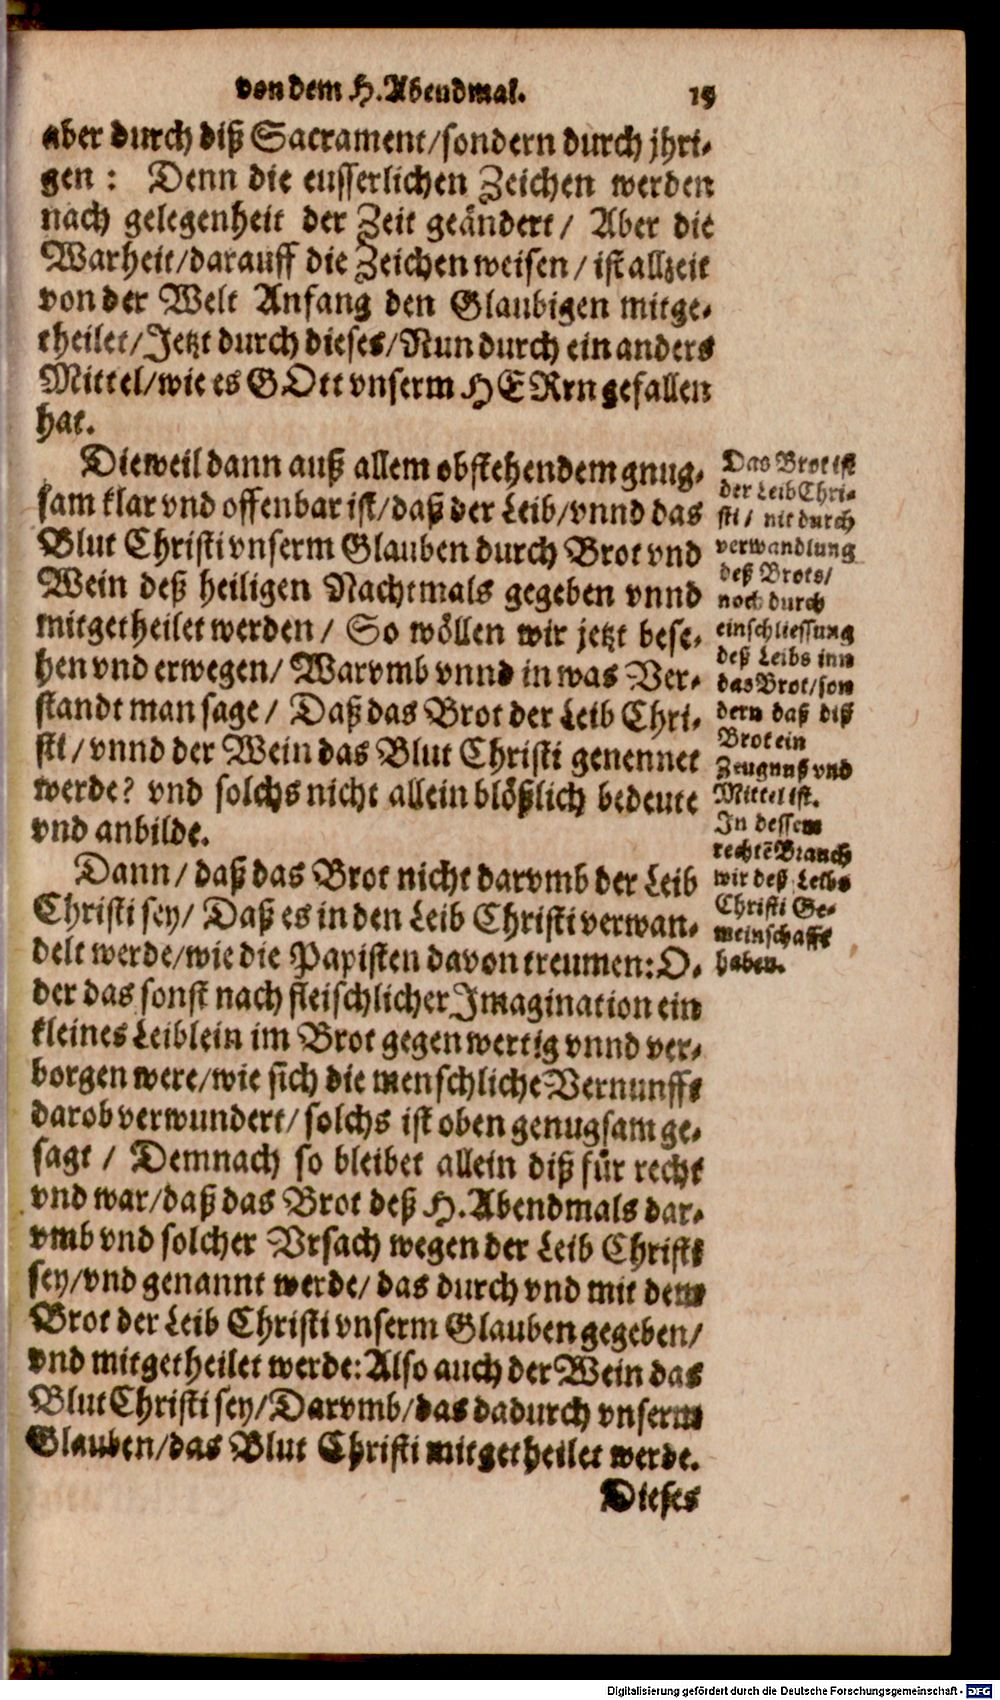 von dem H. Abendmal. 15
aber durch diß Sacrament/sondern durch jhri-
gen: Denn die eusserlichen Zeichen werden
nach gelegenheit der Zeit geändert/ Aber die
Warheit/darauff die Zeichen weisen/ist allzeit
von der Welt Anfang den Glaubigen mitge-
theilet/Jetzt durch dieses/Nun durch ein anders
Mittel/wie es GOtt vnserm HERrn gefallen
hat.
Dieweil dann auß allem obstehendem gnug-
sam klar vnd offenbar ist/daß der Leib/vnnd das
Blut Christi vnserm Glauben durch Brot vnd
Wein deß heiligen Nachtmals gegeben vnnd
mitgetheilet werden/ So wöllen wir jetzt bese-
hen vnd erwegen/ Warvmb vnnd in was Ver-
standt man sage/ Daß das Brot der Leib Chri-
sti/vnnd der Wein das Blut Christi genennet
werde? vnd solchs nicht allein blößlich bedeute
vnd anbilde.
Dann/daß das Brot nicht darvmb der Leib
Christi sey/ Daß es in den Leib Christi verwan-
delt werde/wie die Papisten davon treumen: O-
der das sonst nach fleischlicher Imagination ein
kleines Leiblein im Brot gegenwertig vnnd ver-
borgen were/wie sich die menschliche Vernunfft
darob verwundert/solchs ist oben genugsam ge-
sagt/ Demnach so bleibet allein diß für recht
vnd war/daß das Brot deß H. Abendmals dar-
vmb vnd solcher Vrsach wegen der Leib Christi
sey/vnd genannt werde/das durch vnd mit dem
Brot der Leib Christi vnserm Glauben gegeben/
vnd mitgetheilet werde: Also auch der Wein das
Blut Christi sey/Darvmb/das dadurch vnserm
Glauben/das Blut Christi mitgetheilet werde.
Dieses
Das Brot ist
der Leib Chri-
sti/ nit durch
verwandlung
deß Brots/
noch durch
einschliessung
deß Leibs inn
das Brot/son
dern daß diß
Brot ein
Zeugnuß vnd
Mittel ist.
In dessem
rechtẽ Brauch
wir deß Leibs
Christi Ge-
meinschafft
haben.
Digitalisierung gefördert durch die Deutsche Forschungsgemeinschaft - DFG